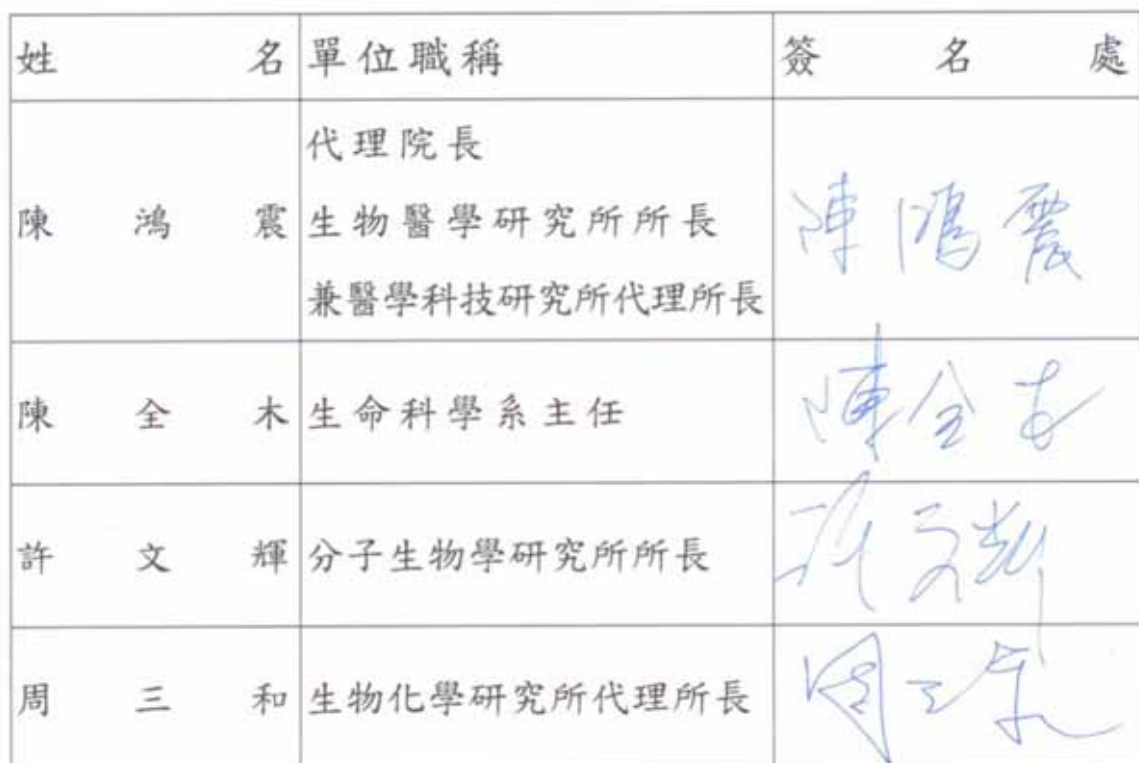 姓名 單位職稱 簽名處
代理院長
陳鴻震 生物醫學研究所所長 陳鴻震
兼醫學科技研究所代理所長
陳全木 生命科學系主任 陳全木
許文輝 分子生物學研究所所長 許文輝
周三和 生物化學研究所代理所長 周三和